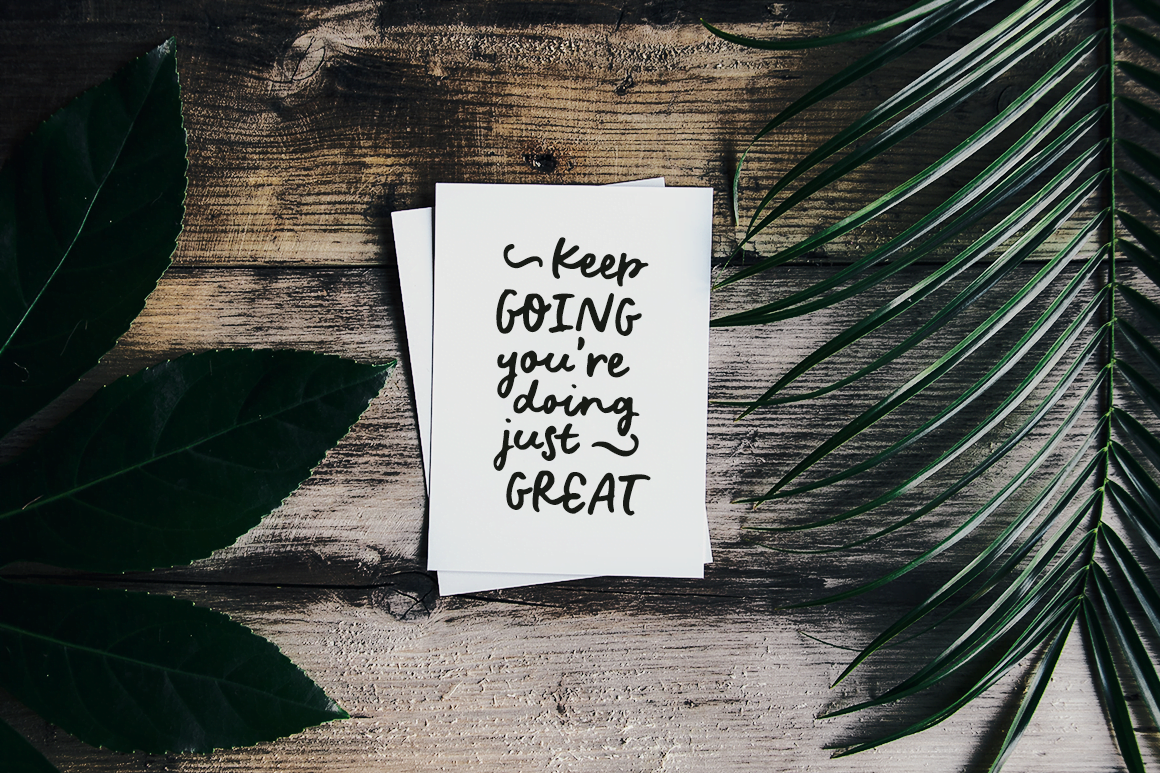 Keep
GOING
you're
doing
just
GREAT